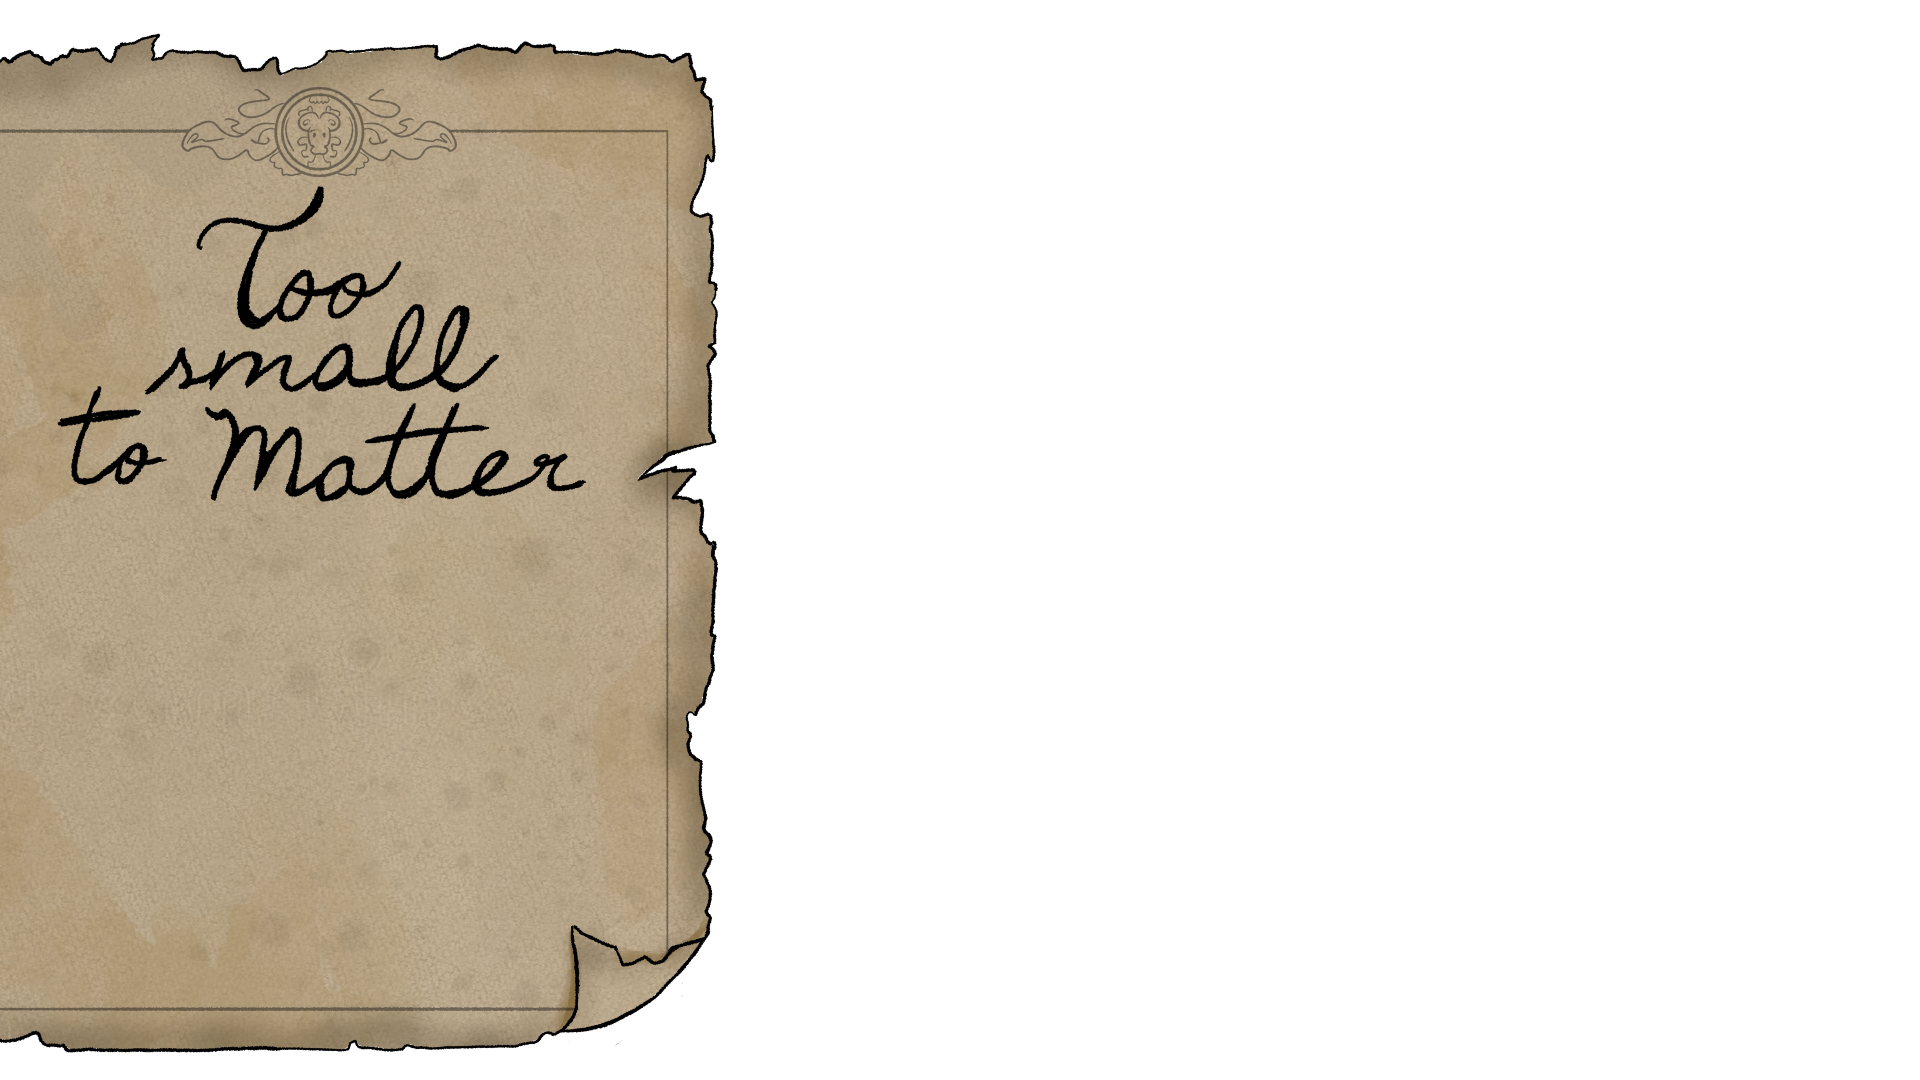 Too
small
to Matter